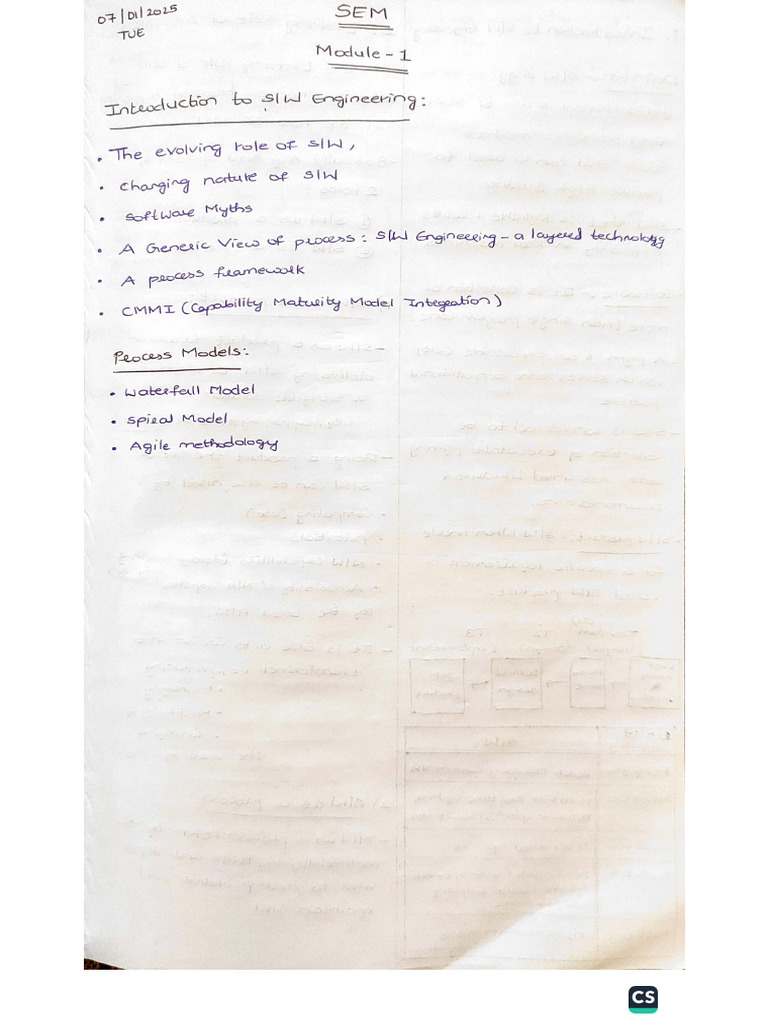 07/01/2025
TUE
SEM
Module-1
Introduction to S/W Engineering:
• The evolving role of S/W,
• changing nature of S/W
• software Myths
• A Generic View of process: S/W Engineering - a layered technology
• A process framework
• CMMI (Capability Maturity Model Integration)
Process Models:
• Waterfall Model
• Spiral Model
• Agile methodology
CS